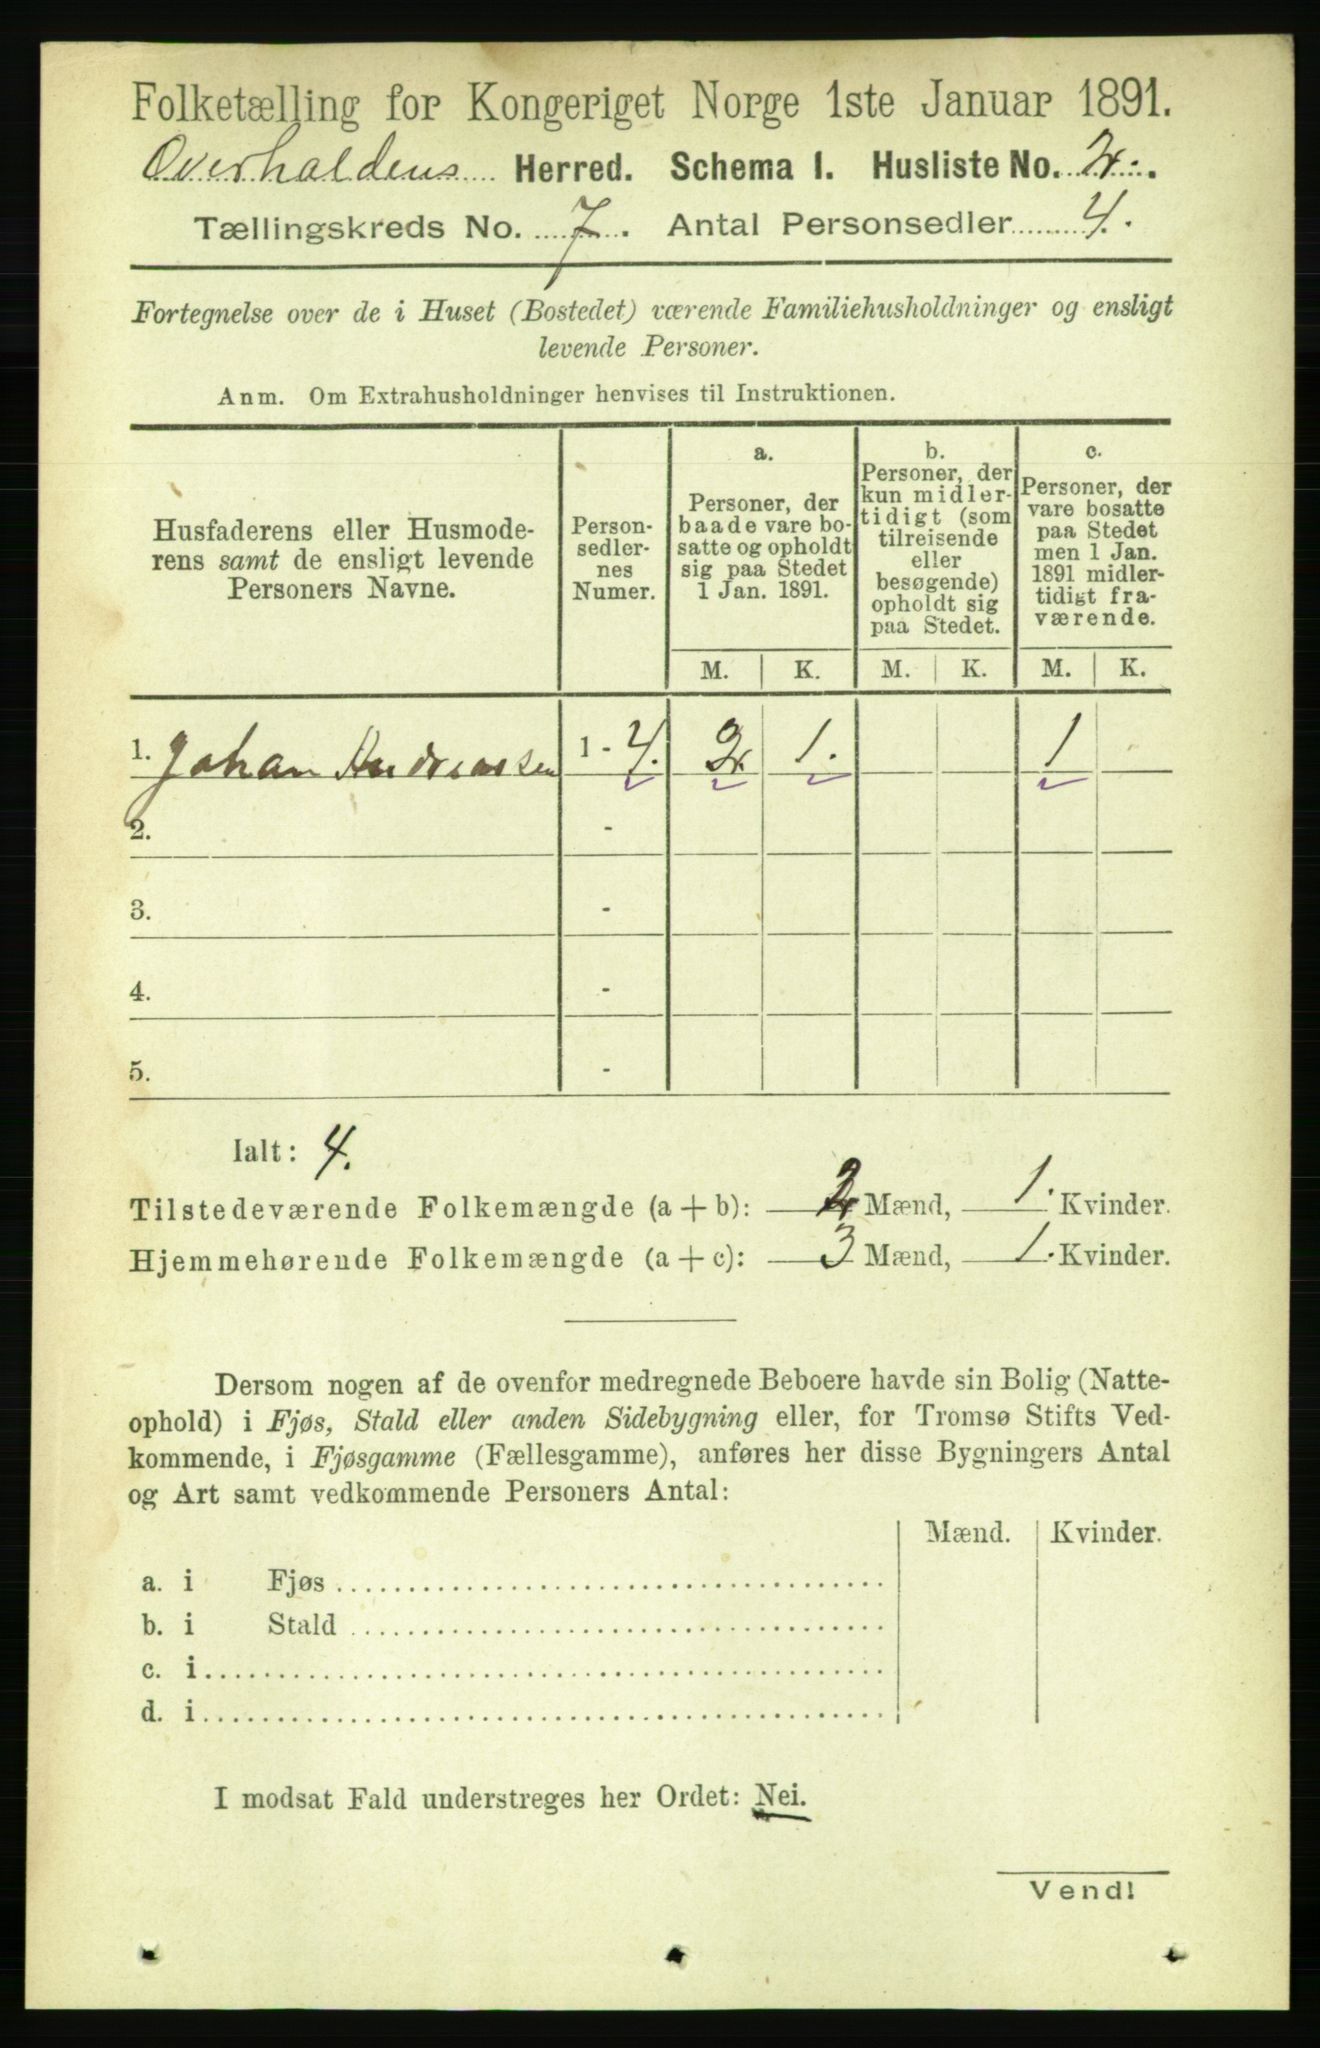 Folketælling for Kongeriget Norge 1ste Januar 1891.
Overhaldens Herred. Schema I. Husliste No. 2.
Tællingskreds No. 7. Antal Personsedler 4.
Fortegnelse over de i Huset (Bostedet) værende Familiehusholdninger og ensligt
levende Personer.
Anm. Om Extrahusholdninger henvises til Instruktionen.
Husfaderens eller Husmode-
rens samt de ensligt levende
Personers Navne.
Person-
sedler-
nes
Numer.
a.
Personer, der
baade vare bo-
satte og opholdt
sig paa Stedet
1 Jan. 1891.
b.
Personer, der
kun midler-
tidigt (som
tilreisende
eller
besøgende)
opholdt sig
paa Stedet.
c.
Personer, der
vare bosatte
paa Stedet
men 1 Jan.
1891 midler-
tidigt fra-
værende.
M. K. M. K. M. K.
1. Johan Andreassen 1 - 4. 2 1. 1
2. -
3. -
4. -
5. -
Ialt: 4.
Tilstedeværende Folkemængde (a + b): 2 Mænd, 1. Kvinder.
Hjemmehørende Folkemængde (a + c): 3 Mænd, 1. Kvinder.
Dersom nogen af de ovenfor medregnede Beboere havde sin Bolig (Natte-
ophold) i Fjøs, Stald eller anden Sidebygning eller, for Tromsø Stifts Ved-
kommende, i Fjøsgamme (Fællesgamme), anføres her disse Bygningers Antal
og Art samt vedkommende Personers Antal:
Mænd. Kvinder.
a. i Fjøs
b. i Stald
c. i
d. i
I modsat Fald understreges her Ordet: Nei.
Vend!